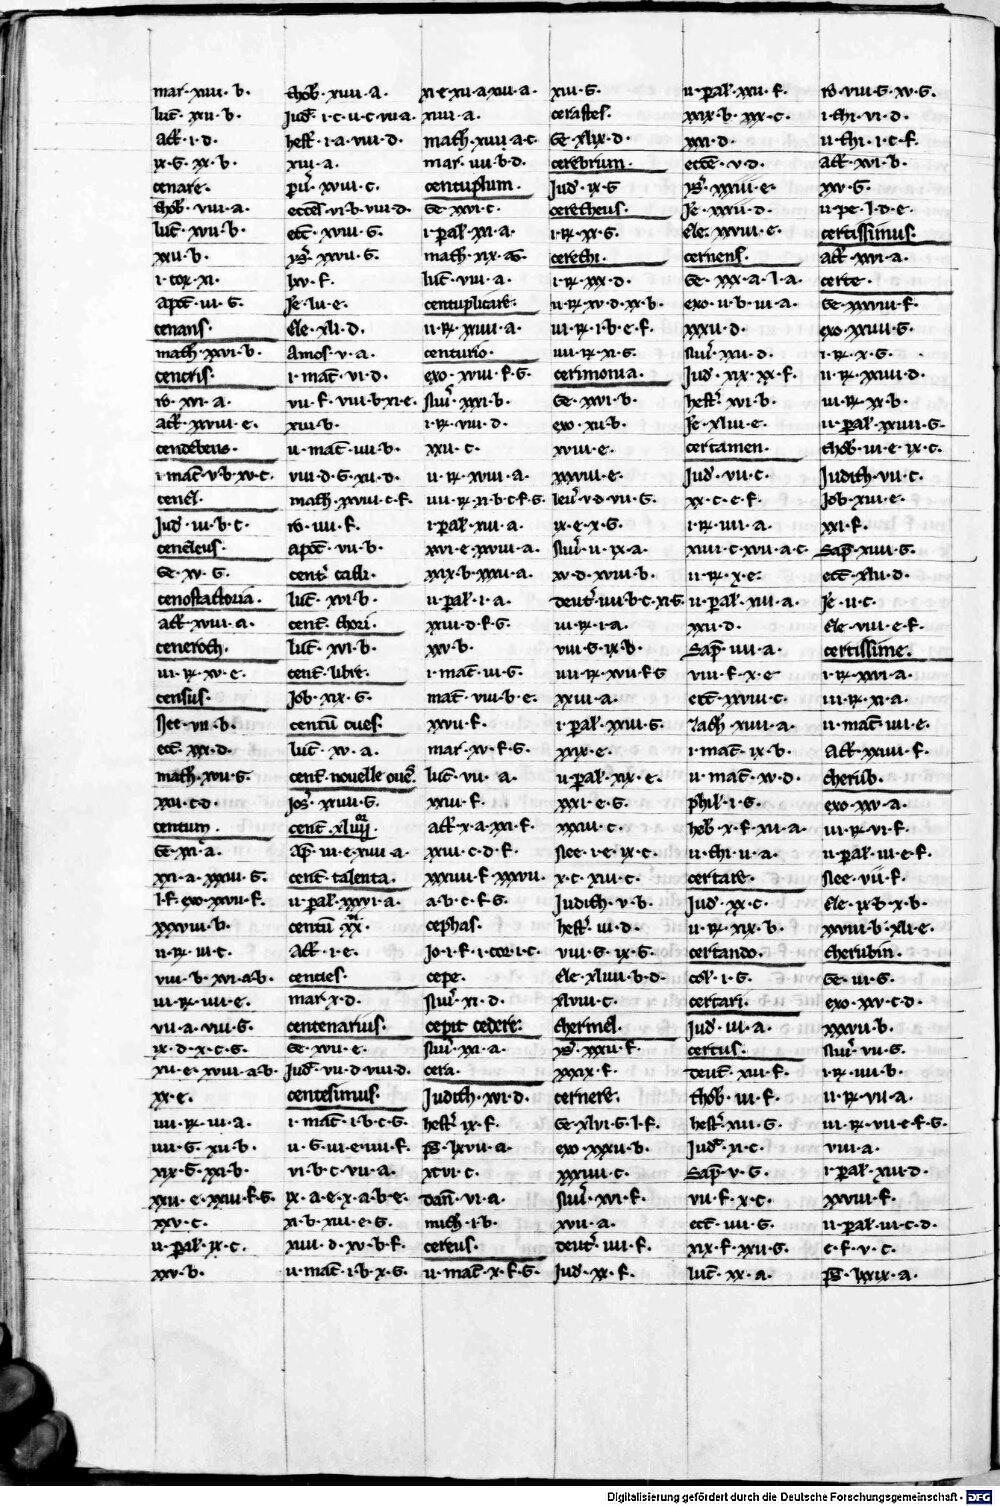 mar· xiiii· b·
luc̄· xii· b·
act̄· i· d·
ix· g· xx· b·
cenare·
thob̄· viii· a·
luc̄· xvii· b·
xxii· b·
i· cor· xi·
apoc̄· iii· g·
cenans·
math· xxvi· b·
cencris·
ro· xvi· a·
act̄· xxviii· e·
cendebeus·
i· mac̄· v· b· xv· c·
cenel·
Jud̄· iii· b· c·
ceneleus·
Ge· xv· g·
act̄· xviii· a·
iii· R· xv· e·
census·
Nee· vii· b·
ecc̄· xxi· d·
math· xvii· g·
xxii· c· d·
centum·
Ge· xxi· a·
xxi· a· xxxiii· g·
l· f· exo· xxvii· f·
xxxviii· b·
ii· R· iii· c·
viii· b· xvi· a· b·
iii· R· iiii· e·
vii· a· viii· g·
ix· d· x· c· g·
xii· e· xviii· a· b·
xx· e·
iiii· R· iii· a·
iiii· g· xii· b·
xix· g· xxi· b·
xxii· e· xxiii· f· g·
xxv· c·
ii· pal̄· ix· c·
xxv· b·
thob̄· xiiii· a·
Jud̄· i· c· ii· c· vii· a·
hest̄· i· a· viii· d·
xiii· a·
pu· xviii· c·
ecces̄· vi· b· viii· d·
ecc̄· xviii· g·
ys̄· xxvii· g·
lxv· f·
Je· lii· e·
Ele· xli· d·
Amos· v· a·
i· mac̄· vi· d·
vii· f· viii· b· xi· e·
xiii· b·
ii· mac̄· iiii· b·
viii· d· g· xii· d·
math· xxviii· c· f·
ro· iiii· f·
apoc̄· vii· b·
luc̄· xvi· b·
cent̄· chori·
luc̄· xvi· b·
cent̄· libre·
Job· xix· g·
centū oues·
luc̄· xv· a·
Jos̄· xxiiii· g·
ap̄· iii· e· xiiii· a·
cent̄· talenta·
ii· pal̄· xxxvi· a·
Act̄· i· e·
centies·
mar· x· d·
centenarius·
Ge· xvii· e·
Jud̄· vii· d· viii· d·
centesimus·
i· mac̄· i· b· c· g·
ii· g· iii· e· iiii· f·
vi· b· c· vii· a·
ix· a· e· x· a· b· e·
xi· b· xiii· e· g·
xiiii· d· xv· b· f·
ii· mac̄· i· b· x· g·
xi· e· xii· a· xiii· a·
xiiii· a·
math· xiiii· a· c·
mar· iiii· b· d·
centuplum·
Ge· xxvi· c·
i· pal̄· xxi· a·
math· xix· g·
luc̄· viii· a·
centuplicare·
ii· R· xxiiii· a·
centurio·
exo· xviii· f· g·
Nūi· xxxi· b·
i· R· viii· d·
xxii· c·
ii· R· xviii· a·
iiii· R· xi· b· c· f· g·
i· pal̄· xiii· a·
xxvi· e· xxviii· a·
xxix· b· xxxii· a·
ii· pal̄· i· a·
xxiii· d· f· g·
xxv· b·
i· mac̄· iii· g·
mat̄· viii· b· e·
xxvii· f·
mar· xv· f· g·
luc̄· vii· a·
xxiii· f·
act̄· x· a· xxi· f·
xxiii· c· d· f·
xxxiiii· f· xxxvii·
a· b· c· f· g·
cephas·
Jo· i· f· i· cor· i· c·
cepe·
Nūi· xi· d·
cepit cedere·
Nūi· xxi· a·
cera·
Judith· xvi· d·
hest̄· ix· f·
ps̄· lxvii· a·
xcvi· c·
Dan̄· vi· a·
mich· i· b·
cereus·
ii· mac̄· x· f· g·
xiii· g·
cerastes·
Ge· xlix· d·
cerebrum·
Jud̄· ix· g·
ceretheus·
i· R· xx· g·
cerethi·
i· R· xxx· d·
ii· R· xv· d· xx· b·
iii· R· i· b· e· f·
iiii· R· xi· g·
cerimonia·
Ge· xxvi· b·
exo· xii· b·
xviii· e·
xxxviii· e·
leui· v· d· vii· g·
ix· e· x· g·
Nūi· ii· ix· a·
xv· d· xviii· b·
deut̄· iiii· b· c· xi· g·
iii· R· i· a·
viii· g· ix· b·
iiii· R· xvii· f· g·
xxiii· a·
i· pal̄· xxiii· g·
xxix· e·
ii· pal̄· xix· e·
xxxi· e· g·
xxxiii· c·
Nee· i· e· ix· c·
x· c· xiii· c·
Judith· v· b·
hest̄· iii· d·
viii· g· ix· g·
Ele· xliiii· b· d·
xlviii· c·
chermel·
ys̄· xxxii· f·
xxxix· f·
cernere·
Ge· xlvi· g· l· f·
exo· xxxii· b·
xxxiiii· c·
Nūi· xvi· f·
xvii· a·
deut̄· iiii· f·
Jud· xx· f·
ii· pal̄· xxii· f·
xxix· b· xxx· c·
xxxi· d·
ecc̄e· v· d·
ys̄· xxxiii· e·
Je· xxxii· d·
Ele· xxviii· e·
cernens·
Ge· xxx· a· l· a·
exo· ii· b· iii· a·
xxxii· d·
Nūi· xxii· d·
Jud· xix· xx· f·
hest̄· xvi· b·
Je· xliii· e·
certamen·
Jud· vii· c·
xx· c· e· f·
i· R· iiii· a·
xiiii· c· xvii· a· c·
ii· R· x· e·
ii· pal̄· xiii· a·
xxii· d·
Sap̄· iiii· a·
viii· f· x· e·
ecc̄· xxviii· c·
zach· xiiii· a·
i· mac̄· ix· b·
ii· mac̄· xv· d·
phil̄· i· g·
heb̄· x· f· xii· a·
ii· thi· ii· a·
certare·
Jud· xx· c·
ii· R· xix· b·
certando·
col̄· i· g·
certari·
Jud· iii· a·
certus·
deut̄· xiii· f·
thob̄· iii· f·
hest̄· xiii· g·
Jud· xi· c·
Sap̄· v· g·
vii· f· x· c·
ecc̄· iiii· g·
xix· f· xxii· g·
luc̄· xx· a·
ro· viii· g· xv· g·
i· thi· vi· d·
ii· thi· i· c· f·
act̄· xvi· b·
xxv· g·
ii· pe· l· d· e·
certissimus·
act̄· xxvi· a·
certe·
Ge· xxxviii· f·
exo· xxiiii· g·
i· R· x· g·
ii· R· xxiiii· d·
iii· R· xx· b·
ii· pal̄· xxiiii· g·
thob̄· iii· e· ix· c·
Judith· vii· c·
Job· xiii· e·
xxi· f·
Sap̄· xiiii· g·
ecc̄· xlii· d·
Je· ii· c·
Ele· vii· e· f·
certissime·
i· R· xxvi· a·
iii· R· xi· a·
ii· mac̄· iiii· e·
Act̄· xxiiii· f·
cherub·
exo· xxv· a·
iii· R· vi· f·
ii· pal̄· iii· e· f·
Nee· vii· f·
Ele· ix· b· x· b·
xxviii· b· xli· e·
cherubin·
Ge· iii· g·
exo· xxv· c· d·
xxxvii· b·
Nūi· vii· g·
i· R· iiii· b·
ii· R· vii· a·
iii· R· vii· e· f· g·
viii· a·
i· pal̄· xiii· d·
xxviii· f·
ii· pal̄· iii· c· d·
e· f· v· c·
ps̄· lxxix· a·
Digitalisierung gefördert durch die Deutsche Forschungsgemeinschaft · DFG